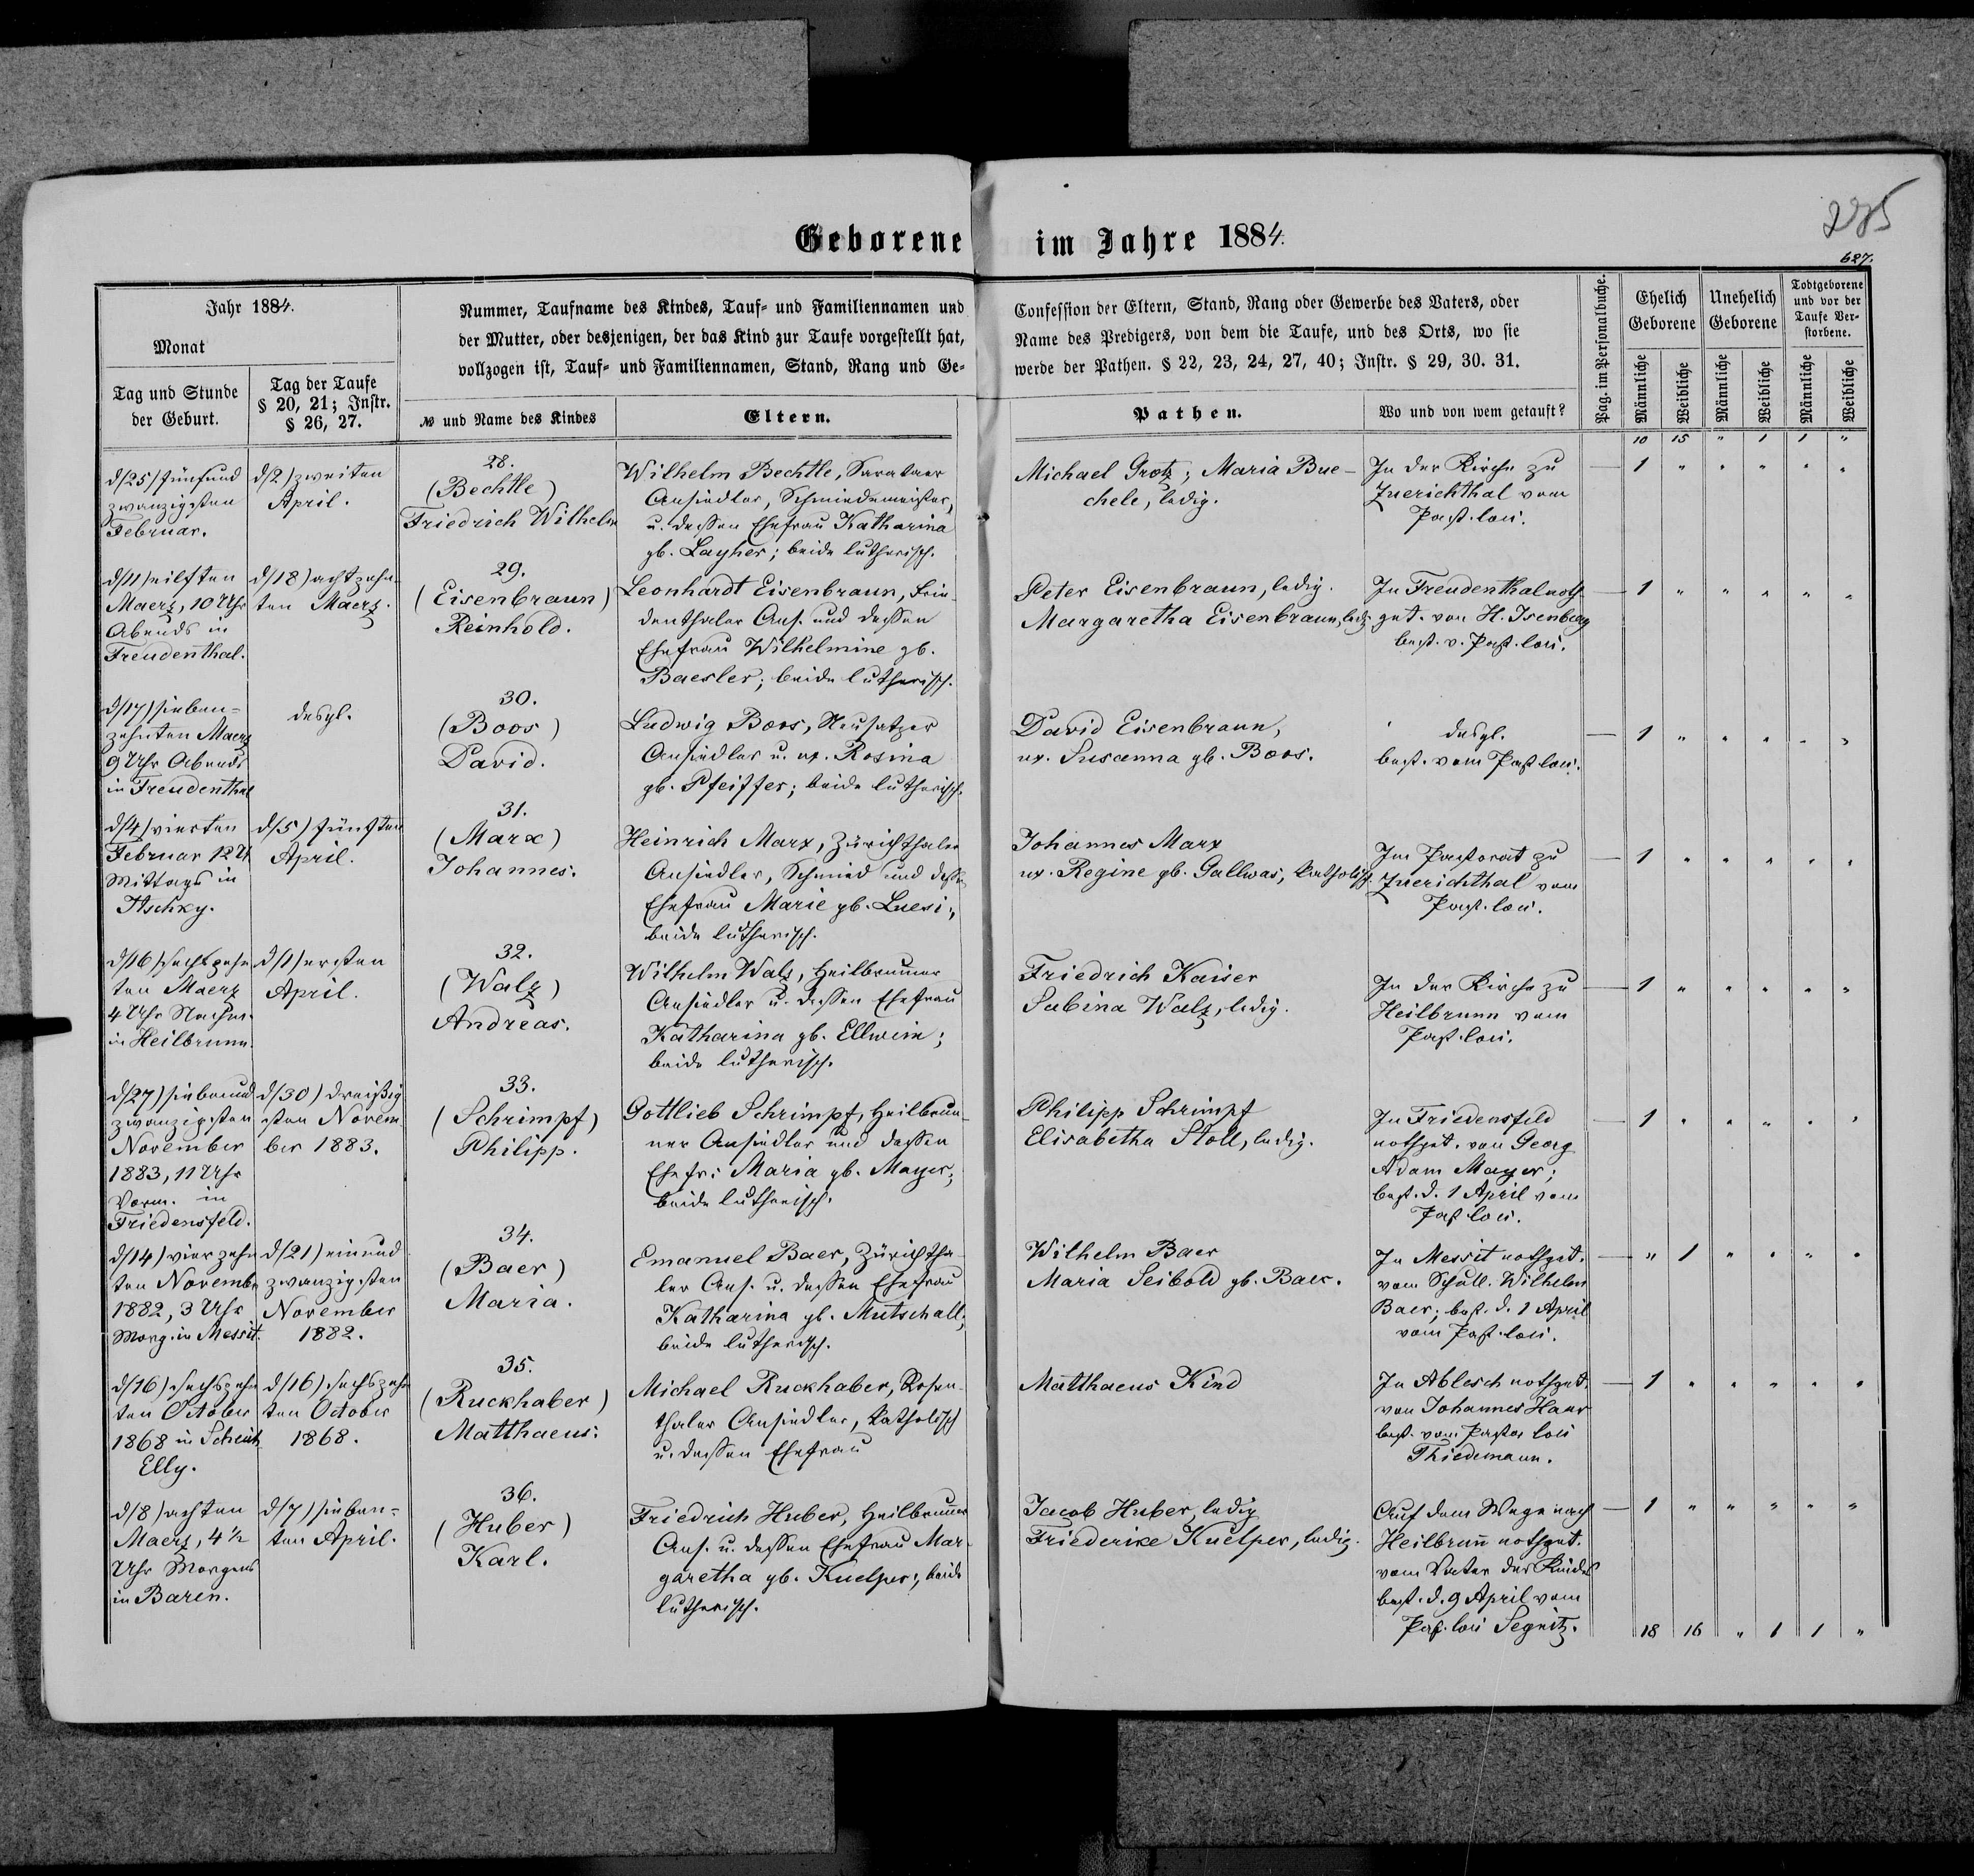 285
627.
Geborene im Jahre 1884.
Jahr 1884.
Monat
Tag und Stunde
der Geburt.
Tag der Taufe
§ 20, 21; Instr.
§ 26, 27.
Nummer, Taufname des Kindes, Tauf- und Familiennamen und
der Mutter, oder desjenigen, der das Kind zur Taufe vorgestellt hat,
vollzogen ist, Tauf- und Familiennamen, Stand, Rang und Ge-
№ und Name des Kindes
Eltern.
Confession der Eltern, Stand, Rang oder Gewerbe des Vaters, oder
Name des Predigers, von dem die Taufe, und des Orts, wo sie
werde der Pathen. § 22, 23, 24, 27, 40; Instr. § 29, 30. 31.
Pathen.
Wo und von wem getauft?
Pag. im Personalbuche.
Ehelich
Geborene
Unehelich
Geborene
Todtgeborene
und vor der
Taufe Ver-
storbene.
Männliche
Weibliche
Männliche
Weibliche
Männliche
Weibliche
10 15 " 1 1 "
d/25) fünfund
zwanzigsten
Februar.
d/2) zweiten
April.
28.
(Bechtle)
Friedrich Wilhelm
Wilhelm Bechtle, Sarataer
Ansiedler, Schmiedemeister,
u. dessen Ehefrau Katharina
gb. Layher; beide lutherisch.
Michael Grotz; Maria Bue-
chele, ledig.
In der Kirche zu
Zuerichthal vom
Past. loci.
— 1 " " " " "
d/11) eilften
Maerz, 10 Uhr
Abends in
Freudenthal.
d/18) achtzehn-
ten Maerz.
29.
(Eisenbraun)
Reinhold.
Leonhardt Eisenbraun, Frie-
denthaler Ans. und dessen
Ehefrau Wilhelmine gb.
Baesler; beide lutherisch.
Peter Eisenbraun, ledig.
Margaretha Eisenbraun, ledig.
In Freudenthal noth
get. von H. Isenberg
best. v. Past. loci.
— 1 " " " " "
d/17) sieben-
zehnten Maerz
9 Uhr Abends
in Freudenthal
desgl.
30.
(Boos)
David.
Ludwig Boos, Neusatzer
Ansiedler u. ux. Rosina
gb. Pfeiffer; beide lutherisch.
David Eisenbraun,
ux. Susanna gb. Boos.
desgl.
best. vom Past loci.
— 1 " " " " "
d/4) vierten
Februar 12 U.
Mittags in
Itschky.
d/5) fünften
April.
31.
(Marx)
Johannes.
Heinrich Marx, Zürichthaler
Ansiedler, Schmied und dessen
Ehefrau Marie gb. Luesi;
beide lutherisch.
Johannes Marx
ux. Regine gb. Gallwas, katholisch
Im Pastorat zu
Zuerichthal vom
Past. loci.
— 1 " " " " "
d/16) sechzehn
ten Maerz
4 Uhr Nachm.
in Heilbrunn.
d/1) ersten
April.
32.
(Walz)
Andreas.
Wilhelm Walz, Heilbrunner
Ansiedler u. dessen Ehefrau
Katharina gb. Ellwein;
beide lutherisch.
Friedrich Kaiser
Sabina Walz, ledig.
In der Kirche zu
Heilbrunn vom
Past. loci.
— 1 " " " " "
d/27) siebenund
zwanzigsten
November
1883, 11 Uhr
Vorm. in
Friedensfeld.
d/30) dreißig
sten Novem
ber 1883.
33.
(Schrimpf)
Philipp.
Gottlieb Schrimpf, Heilbrun-
ner Ansiedler und dessen
Ehefr: Maria gb. Mayer;
beide lutherisch.
Philipp Schrimpf
Elisabetha Stoll, ledig.
In Friedensfeld
nothget. von Georg
Adam Mayer;
best. d. 1 April vom
Past loci.
— 1 " " " " "
d/14) vierzehn
ten Novembr
1882, 3 Uhr
Morg. in Messit.
d/21) einund
zwanzigsten
November
1882.
34.
(Baer)
Maria.
Emanuel Baer, Züricht­ha-
ler Ans. u. dessen Ehefrau
Katharina gb. Mutschall;
beide lutherisch.
Wilhelm Baer
Maria Seibold gb. Baer.
In Messit nothget.
vom Schull. Wilhelm
Baer; best. d. 1 April
vom Past. loci.
— " 1 " " " "
d/16) sechszehn
ten October
1868 in Scheich
Elly.
d/16) sechszehn
ten October
1868.
35.
(Ruckhaber)
Matthaeus.
Michael Ruckhaber, Rosen-
thaler Ansiedler, katholisch
u. dessen Ehefrau
Matthaeus Kind
In Ablesch nothget.
von Johannes Haar
best. vom Pastor loci
Thiedemann.
— 1 " " " " "
d/8) achten
Maerz, 4½
Uhr Morgens
in Baren.
d/7) sieben-
ten April.
36.
(Huber)
Karl.
Friedrich Huber, Heilbrunner
Ans. u. dessen Ehefrau Mar-
garetha gb. Kuelper; beide
lutherisch.
Jacob Huber, ledig
Friederike Kuelper, ledig.
Auf dem Wege nach
Heilbrunn nothget.
vom Vater des Kindes
best. d. 9 April vom
Past. loci Segnitz.
— 1 " " " " "
18 16 " 1 1 "